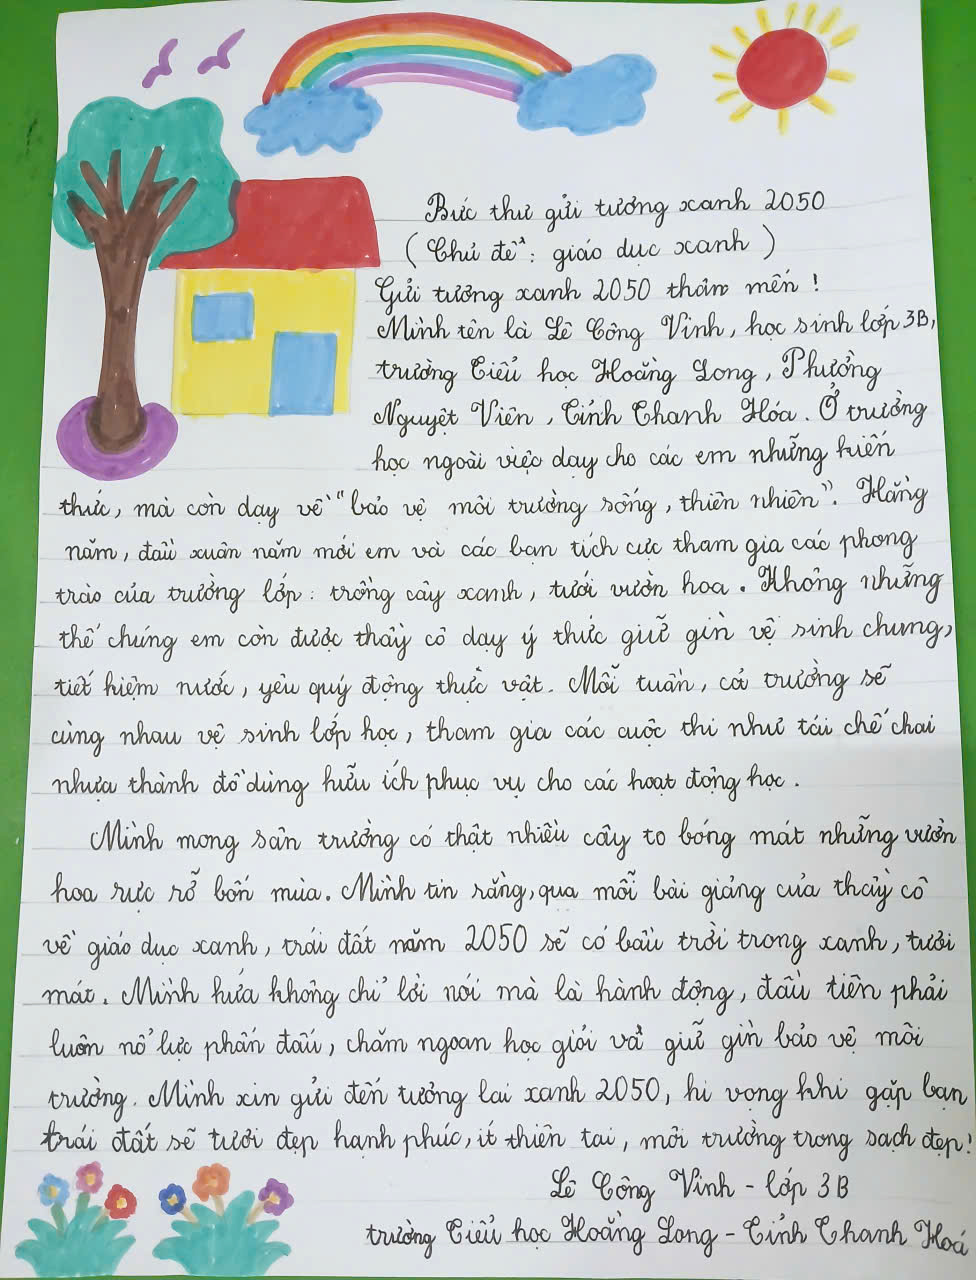 Bức thư gửi tương xanh 2050
(Chủ đề: giáo dục xanh)
Gửi tương xanh 2050 thân mến!
Mình tên là Lê Công Vinh, học sinh lớp 3B,
trường Tiểu học Hoằng Long, Phường
Nguyệt Viên, Tỉnh Thanh Hóa. Ở trường
học ngoài việc dạy cho các em những kiến
thức, mà còn dạy về "bảo vệ môi trường sống, thiên nhiên". Hằng
năm, đầu xuân năm mới em và các bạn tích cực tham gia các phong
trào của trường lớp: trồng cây xanh, tưới vườn hoa. Không những
thế chúng em còn được thầy cô dạy ý thức giữ gìn vệ sinh chung,
tiết kiệm nước, yêu quý động thực vật. Mỗi tuần, cả trường sẽ
cùng nhau vệ sinh lớp học, tham gia các cuộc thi như tái chế chai
nhựa thành đồ dùng hữu ích phục vụ cho các hoạt động học.
Mình mong sân trường có thật nhiều cây to bóng mát những vườn
hoa rực rỡ bốn mùa. Mình tin rằng, qua mỗi bài giảng của thầy cô
về giáo dục xanh, trái đất năm 2050 sẽ có bầu trời trong xanh, tươi
mát. Mình hứa không chỉ lời nói mà là hành động, đầu tiên phải
luôn nỗ lực phấn đấu, chăm ngoan học giỏi và giữ gìn bảo vệ môi
trường. Mình xin gửi đến tương lai xanh 2050, hi vọng khi gặp bạn
trái đất sẽ tươi đẹp hạnh phúc, ít thiên tai, môi trường trong sạch đẹp!
Lê Công Vinh - lớp 3B
trường Tiểu học Hoằng Long - Tỉnh Thanh Hoá